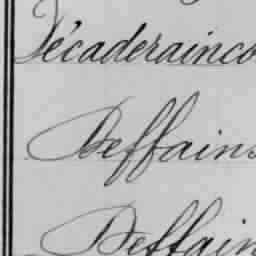 Décaderainco
Deffains
Deffain